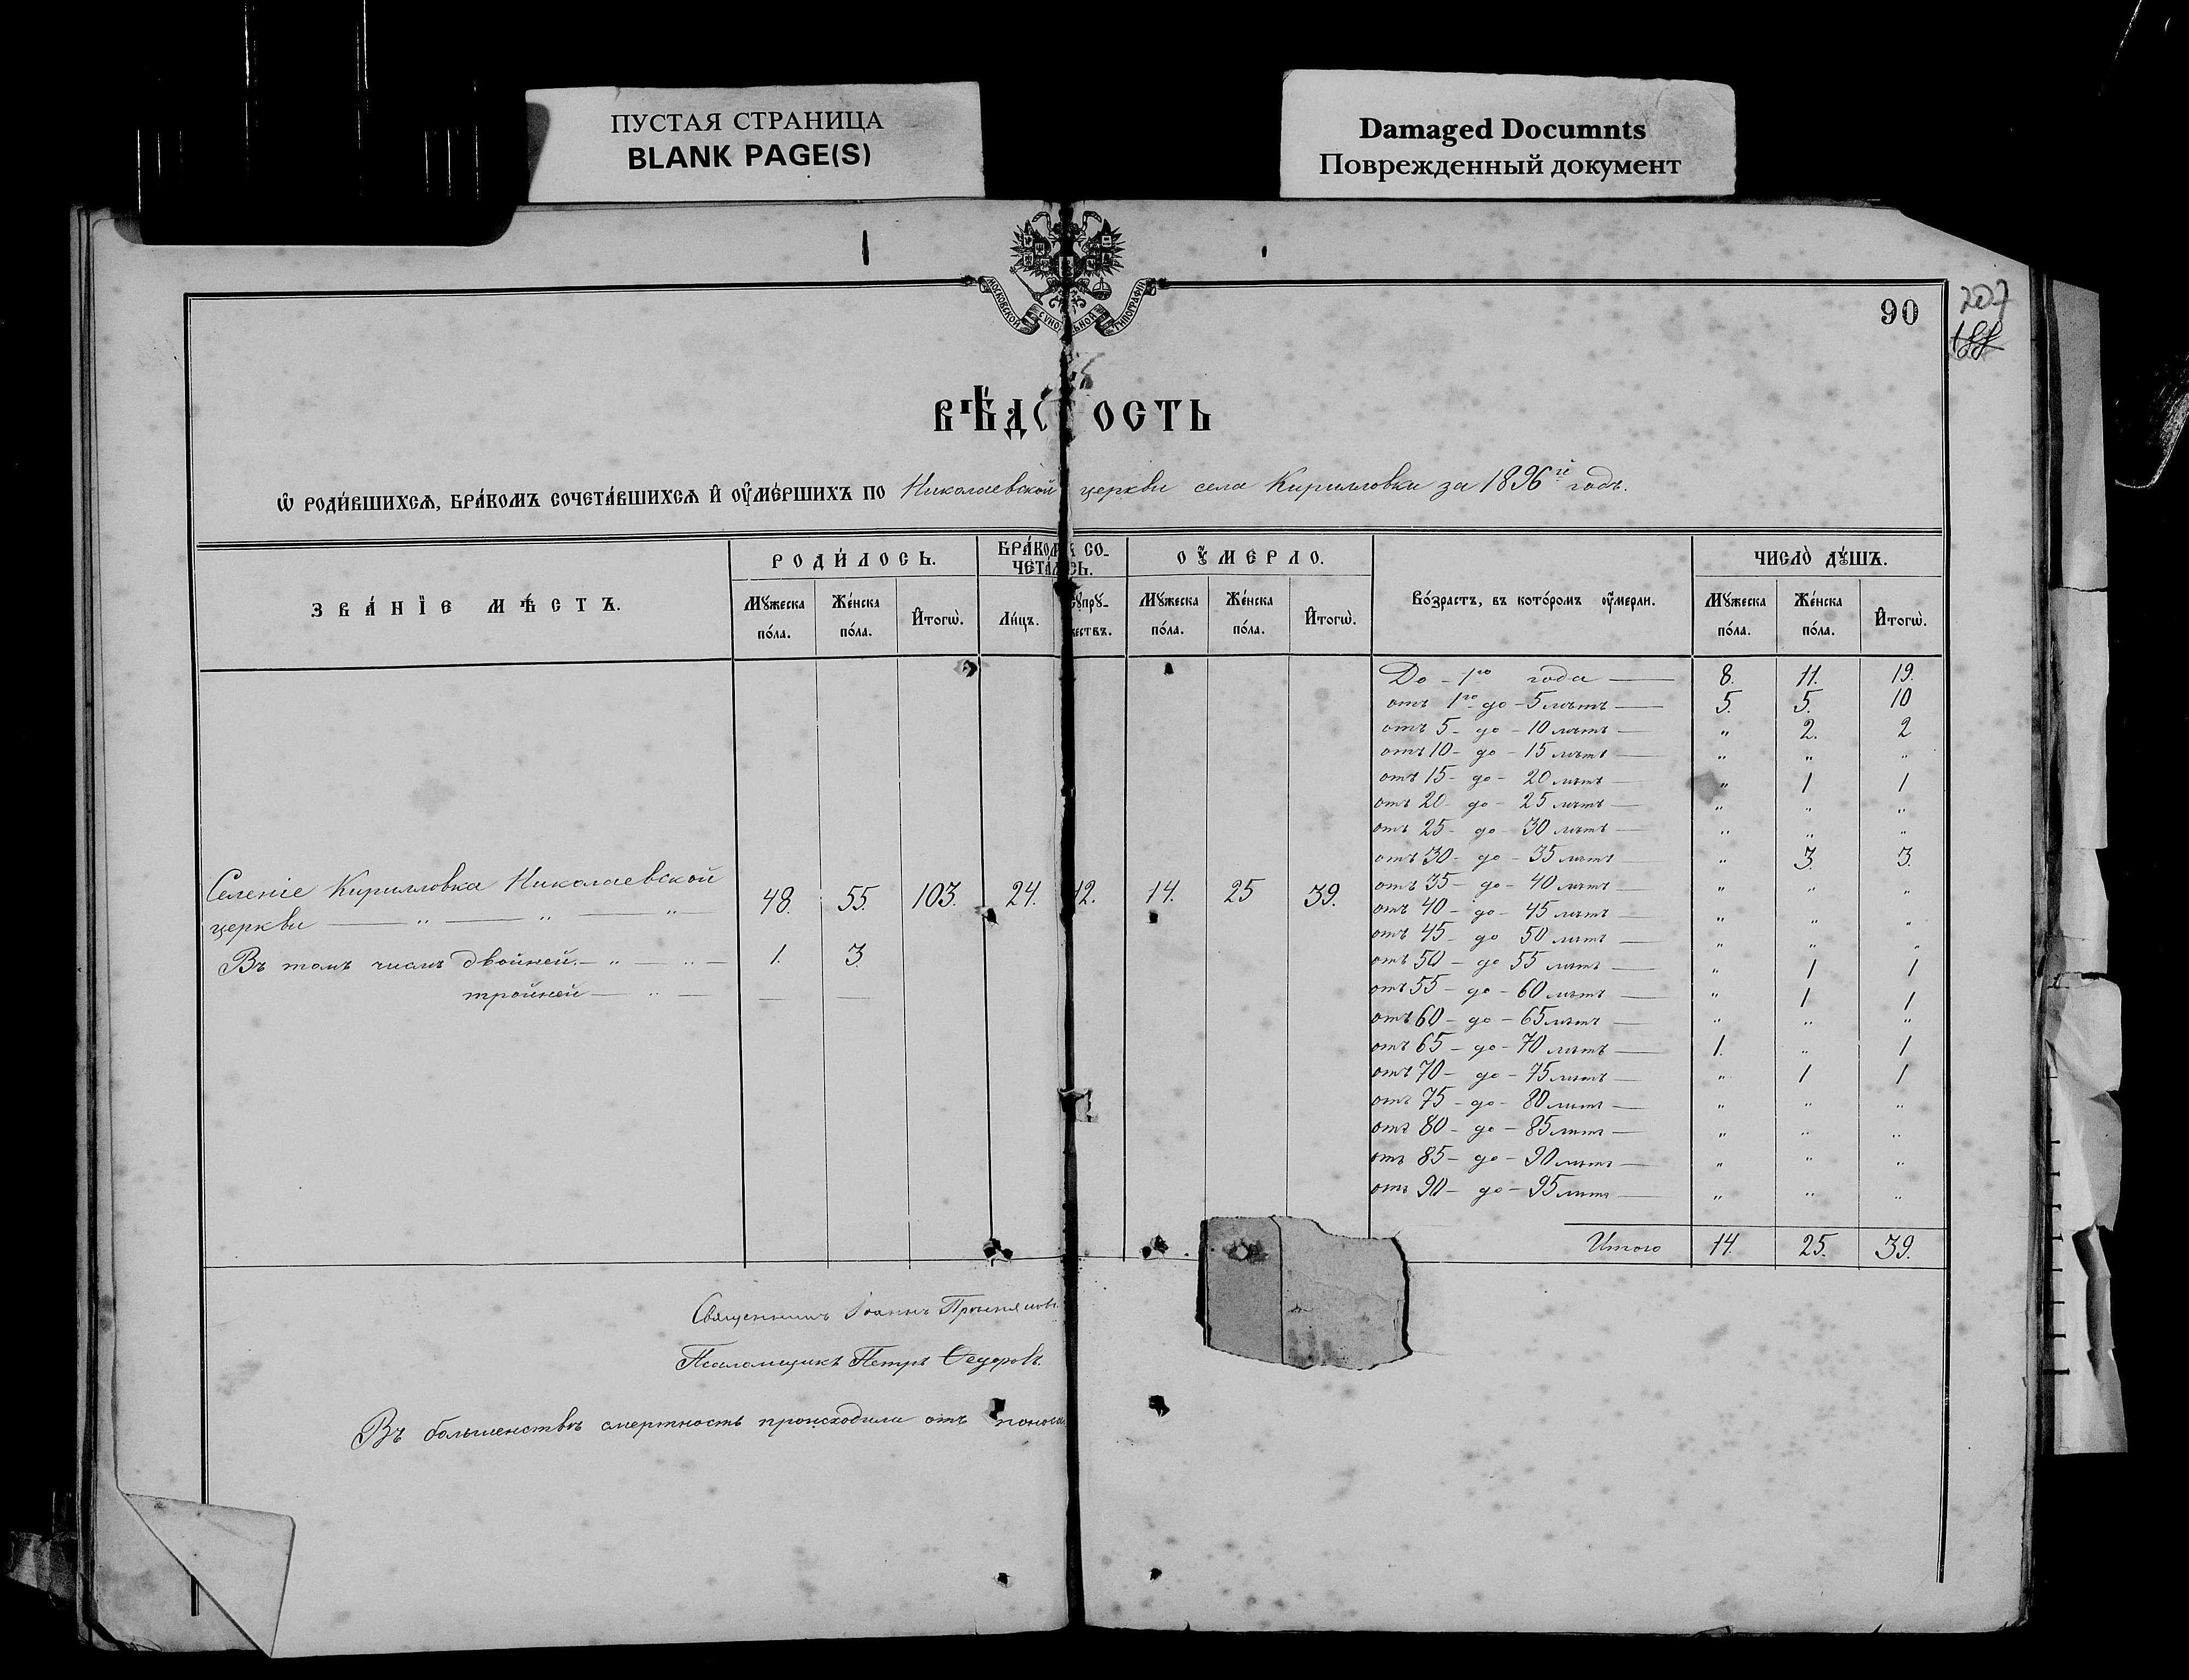 ПУСТАЯ СТРАНИЦА
BLANK PAGE(S)
Damaged Documnts
Поврежденный документ
МОСКОВСКОЙ СѴНОДАЛЬНОЙ ТИПОГРАФІИ
90
207
ВѢДО ОСТЬ
Ѡ РОДИ́ВШИХСѦ, БРА́КОМЪ СОЧЕТА́ВШИХСѦ И҆ ОУ҆МЕ́РШИХЪ ПО Николаевской церкви села Кирилловки за 1896й годъ.
ЗВА́НЇЕ МѢ́СТЪ.
РОДИ́ЛОСЬ. БРА́КОМЪ СО-ЧЕТА́ЛОСЬ. ОУ҆́МЕРЛО. Во́зрастъ, въ кото́ромъ оу҆́мерли. ЧИСЛО̀ ДꙊ́ШЪ.
Мꙋ́жеска по́ла. Же́нска по́ла. И҆тогѡ̀. Ли́цъ. сꙋпрꙋ-жествъ. Мꙋ́жеска по́ла. Же́нска по́ла. И҆тогѡ̀. Мꙋ́жеска по́ла. Же́нска по́ла. И҆тогѡ̀.
До - 1го года — 8. 11. 19.
отъ 1го до - 5 лѣтъ — 5. 5. 10
отъ 5 - до - 10 лѣтъ — „ 2. 2
отъ 10 - до - 15 лѣтъ — „ „ „
отъ 15 - до - 20 лѣтъ — „ 1 1
отъ 20 - до - 25 лѣтъ — „ „ „
отъ 25 - до - 30 лѣтъ — „ „ „
отъ 30 - до - 35 лѣтъ — „ 3. 3.
Селеніе Кирилловка Николаевской
церкви — „ — „ — „ 48. 55. 103. 24. 12. 14. 25 39.
отъ 35 - до - 40 лѣтъ — „ „ „
отъ 40 - до - 45 лѣтъ — „ „ „
отъ 45 - до 50 лѣтъ — „ „ „
Въ томъ числѣ двойней. — „ — „ — 1. 3.
тройней — „ — — —
отъ 50 - до 55 лѣтъ — „ 1 1
отъ 55 - до - 60 лѣтъ — „ 1 1
отъ 60 - до - 65 лѣтъ — „ „ „
отъ 65 - до - 70 лѣтъ — 1. „ 1
отъ 70 - до - 75 лѣтъ — „ 1 1
отъ 75 - до - 80 лѣтъ — „ „ „
отъ 80 - до - 85 лѣтъ — „ „ „
отъ 85 - до - 90 лѣтъ — „ „ „
отъ 90 - до - 95 лѣтъ — „ „ „
Итого 14. 25. 39.
Священникъ Іоаннъ
Псаломщикъ Петръ Ѳедоровъ.
Въ большенствѣ смертность происходила отъ поноса